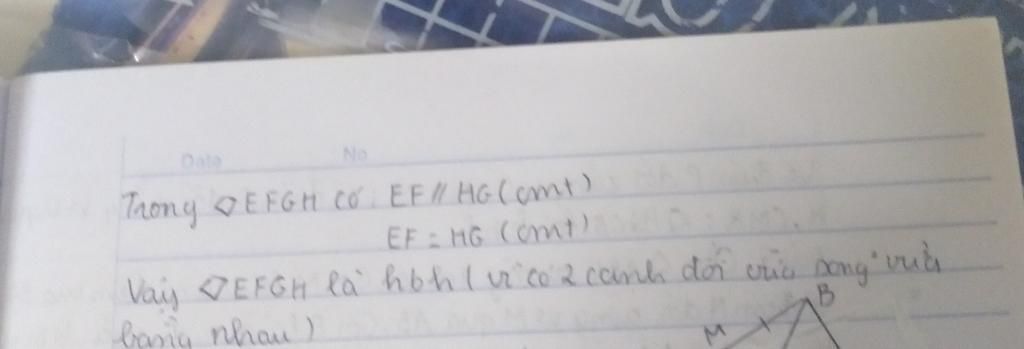 Date No
Trong ◇EFGH có EF // HG (cmt)
EF = HG (cmt)
Vậy ◇EFGH là hbh (vì có 2 cạnh đối vừa song² vừa
bằng nhau)
B
M